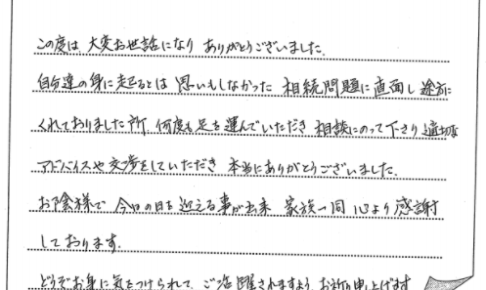 この度は 大変お世話になり ありがとうございました。
自分達の身に起るとは 思いもしなかった 相続問題に直面し 途方に
くれておりました所、何度も足を運んでいただき 相談にのって下さり 適切な
アドバイスや交渉をしていただき 本当にありがとうございました。
お陰様で 今日の日を迎える事が出来 家族一同 心より感謝
しております。
どうぞお身に気をつけられて、ご活躍されますよう、お祈り申上げます